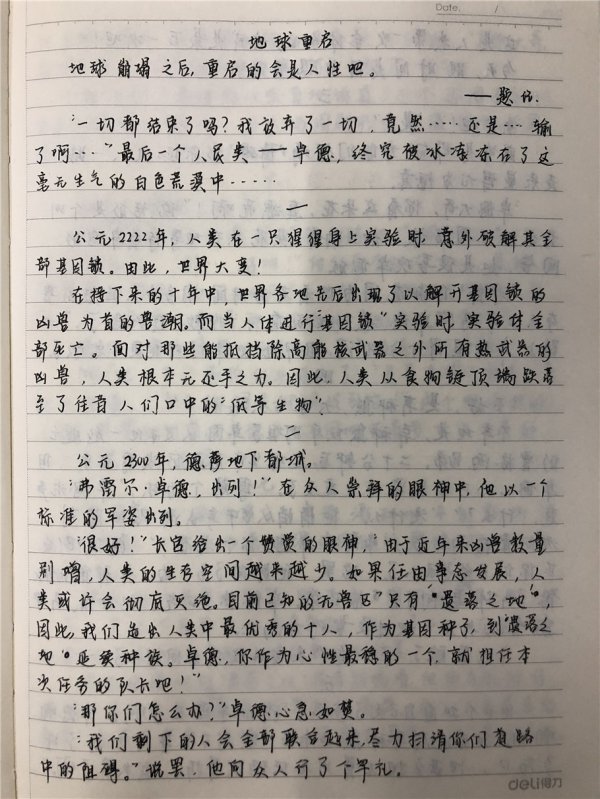 Date. /
地球重启
地球崩塌之后,重启的会是人性吧。
——题记.
“一切都结束了吗?我放弃了一切,竟然……还是…输
了啊…”最后一个人民类——卓德,终究被冰冻冻在了这
毫无生气的白色荒漠中……
一
公元2222年,人类在一只猩猩身上实验时,意外破解其全
部基因锁。由此,世界大变!
在接下来的十年中,世界各地先后出现了以解开基因锁的
凶兽为首的兽潮。而当人体进行“基因锁”实验时,实验体全
部死亡。面对那些能抵挡除高能核武器之外所有热武器的
凶兽,人类根本无还手之力。因此,人类从食物链顶端跌落
至了往昔人们口中的“低等生物”.
二
公元2300年,德莎地下都城。
“弗雷尔·卓德,出列!”在众人崇拜的眼神中,他以一个
标准的军姿出列。
“很好!”长官给出一个赞赏的眼神,“由于近年来凶兽数量
剧增,人类的生存空间越来越少。如果任由事态发展,人
类或许会彻底灭绝。目前已知的“无兽区”只有“遗落之地”,
因此,我们选出人类中最优秀的十人,作为基因种子,到“遗落之
地”延续种族。卓德,你作为心性最稳的一个,就担任本
次任务的队长吧!”
“那你们怎么办?”卓德心急如焚。
“我们剩下的人会全部联合起来,尽力扫清你们道路
中的阻碍。”说罢,他向众人行了个军礼。
deli得力